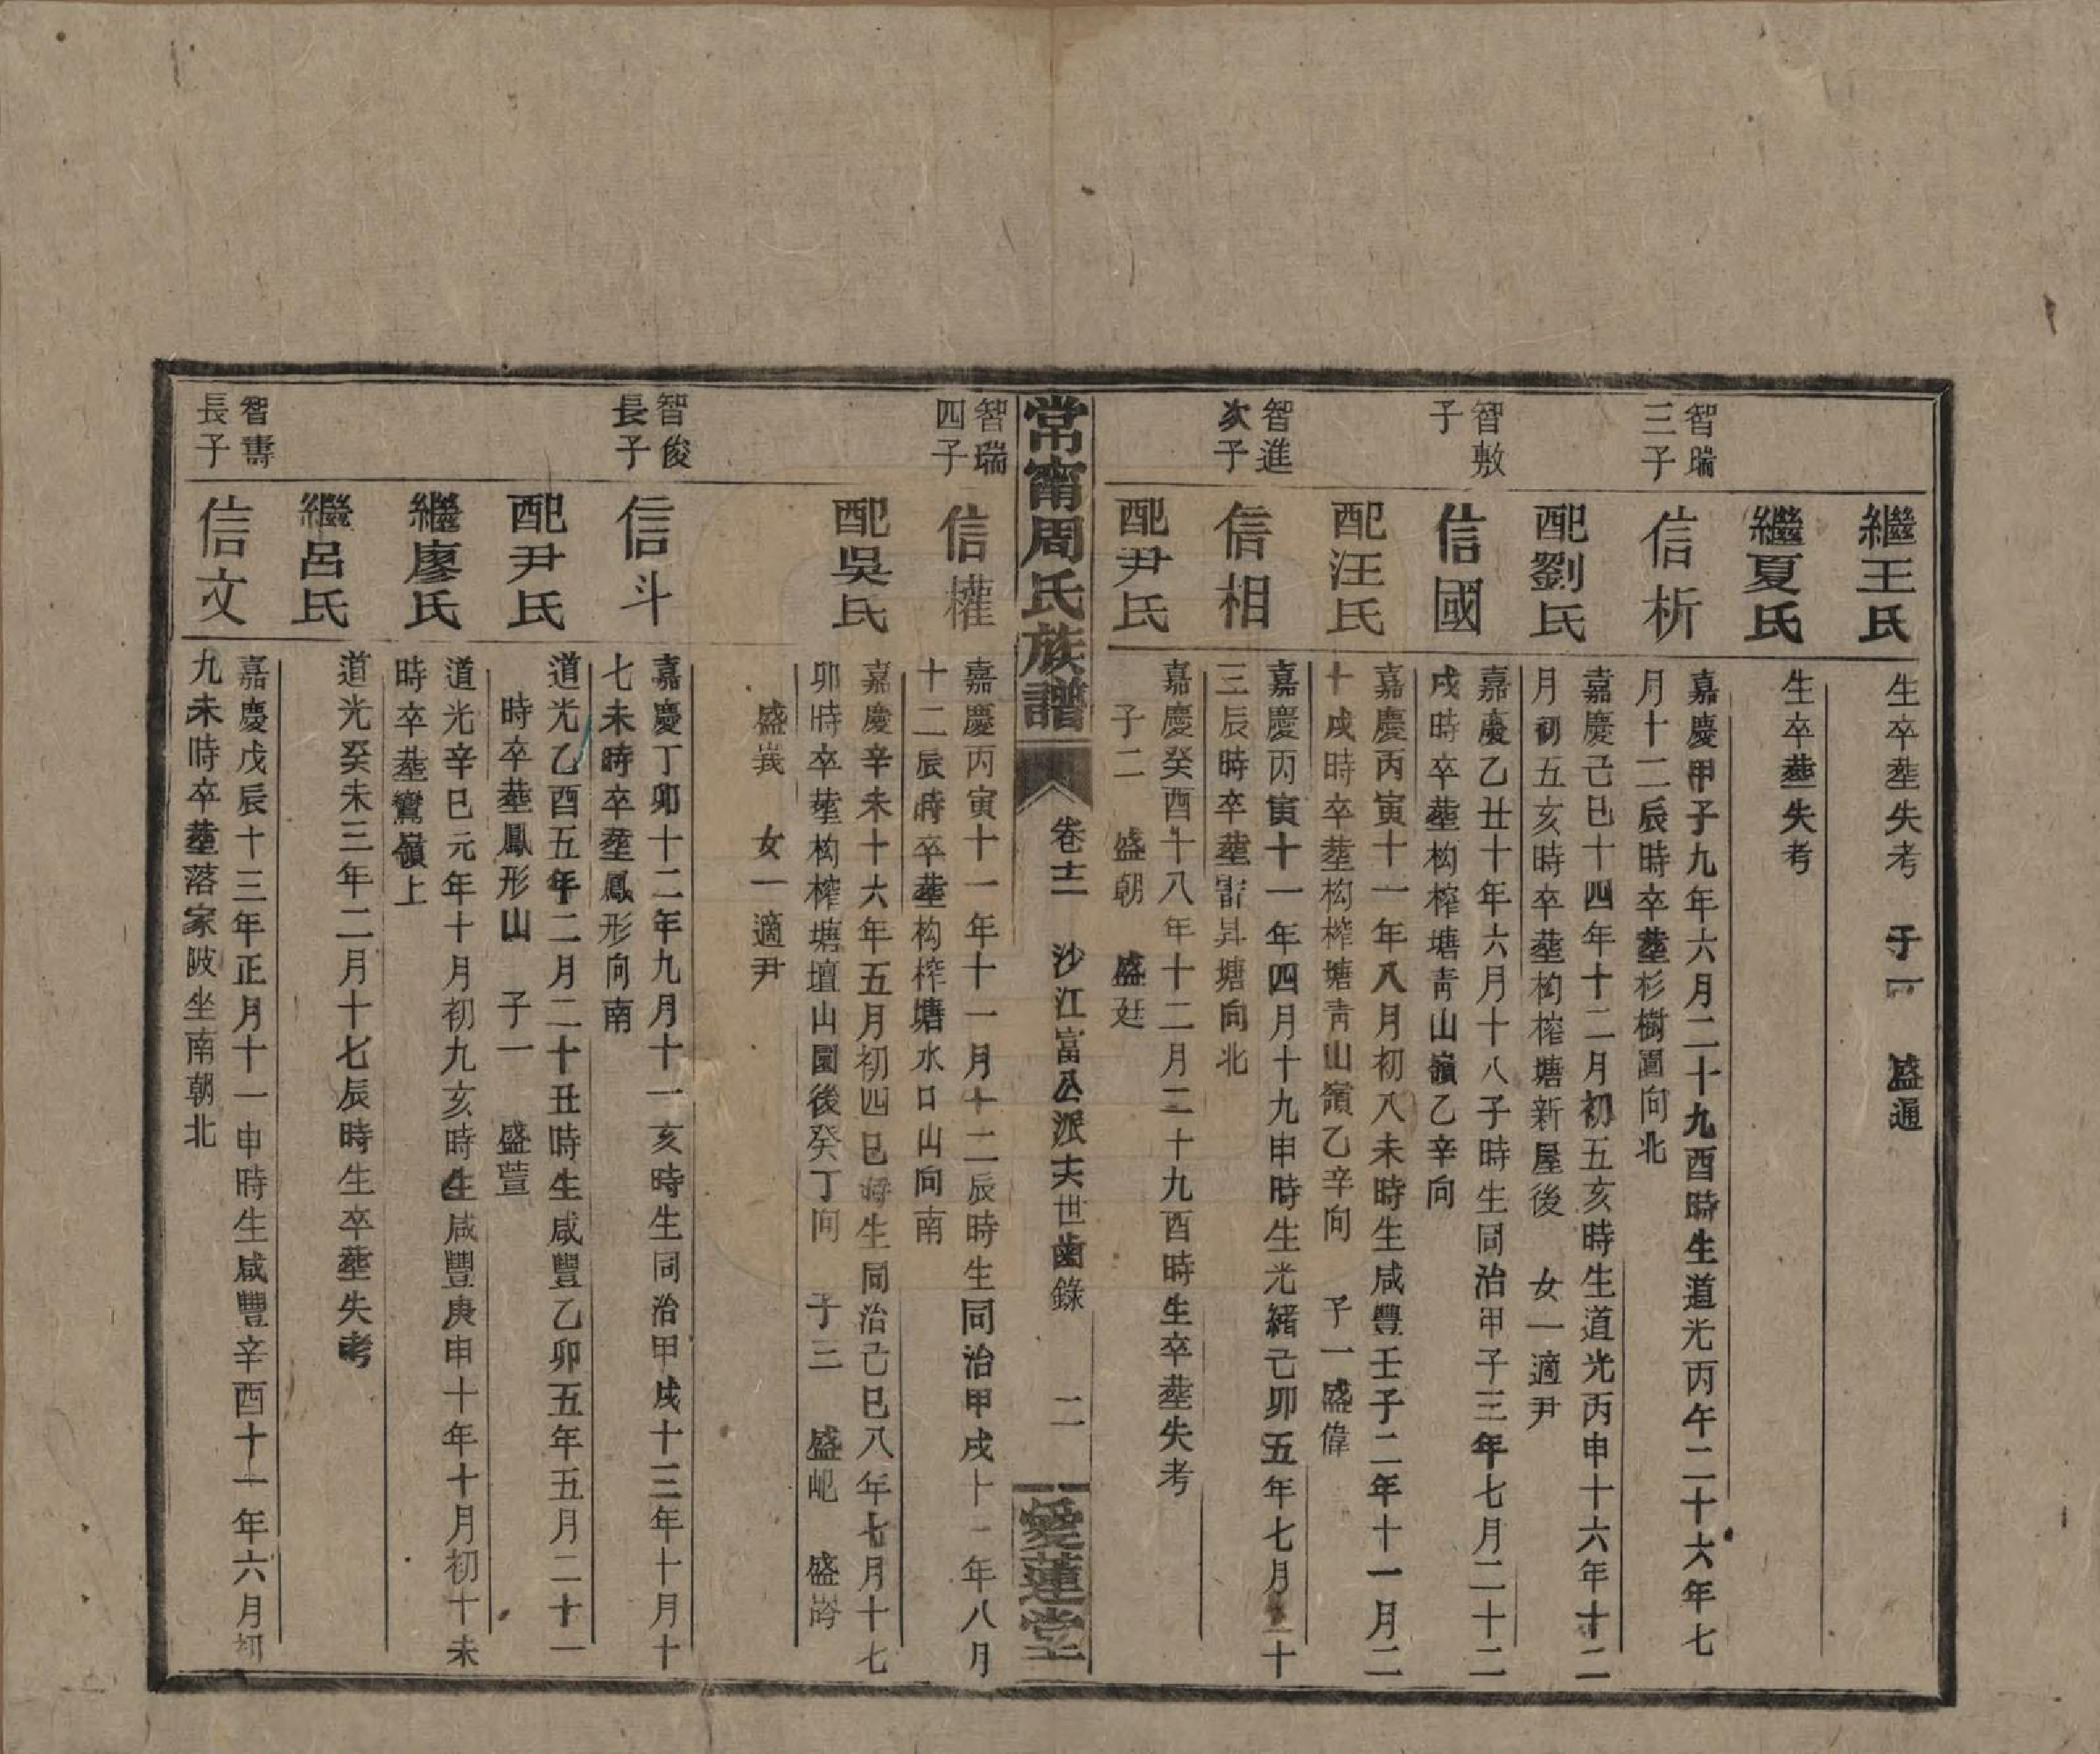 繼王氏
生卒塟失考　子一　盛通
繼夏氏
生卒塟失考
智瑞
三子
信析
嘉慶甲子九年六月二十九酉時生道光丙午二十六年七
月十二辰時卒塟杉樹圓向北
配劉氏
嘉慶己巳十四年十二月初五亥時生道光丙申十六年十二
月初五亥時卒塟构榨塘新屋後　女一適尹
智敷
子
信國
嘉慶乙丑十年六月十八子時生同治甲子三年七月二十二
戌時卒塟构榨塘靑山嶺乙辛向
配汪氏
嘉慶丙寅十一年八月初八未時生咸豐壬子二年十一月二
十戌時卒塟构榨塘靑山嶺乙辛向　子一盛偉
智進
次子
信相
嘉慶丙寅十一年四月十九申時生光緒己卯五年七月二十
三辰時卒塟雷昇塘向北
配尹氏
嘉慶癸酉十八年十二月二十九酉時生卒塟失考
子二　盛朝　盛廷
常甯周氏族譜
卷十二　沙江富公派十六世齒錄　二
愛蓮堂
智瑞
四子
信權
嘉慶丙寅十一年十一月十二辰時生同治甲戌十一年八月
十二辰時卒塟构榨塘水口山向南
配吳氏
嘉慶辛未十六年五月初四巳時生同治己巳八年七月十七
卯時卒塟构榨塘壇山園後癸丁向　子三　盛岲　盛崣
盛峩　女一適尹
智俊
長子
信斗
嘉慶丁卯十二年九月十一亥時生同治甲戌十三年十月十
七未時卒塟鳳形向南
配尹氏
道光乙酉五年二月二十丑時生咸豐乙卯五年五月二十一
時卒塟鳳形山　子一　盛萱
繼廖氏
道光辛巳元年十月初九亥時生咸豐庚申十年十月初十未
時卒塟鸞嶺上
繼呂氏
道光癸未三年二月十七辰時生卒塟失考
智壽
長子
信文
嘉慶戊辰十三年正月十一申時生咸豐辛酉十一年六月初
九未時卒塟落家陂坐南朝北